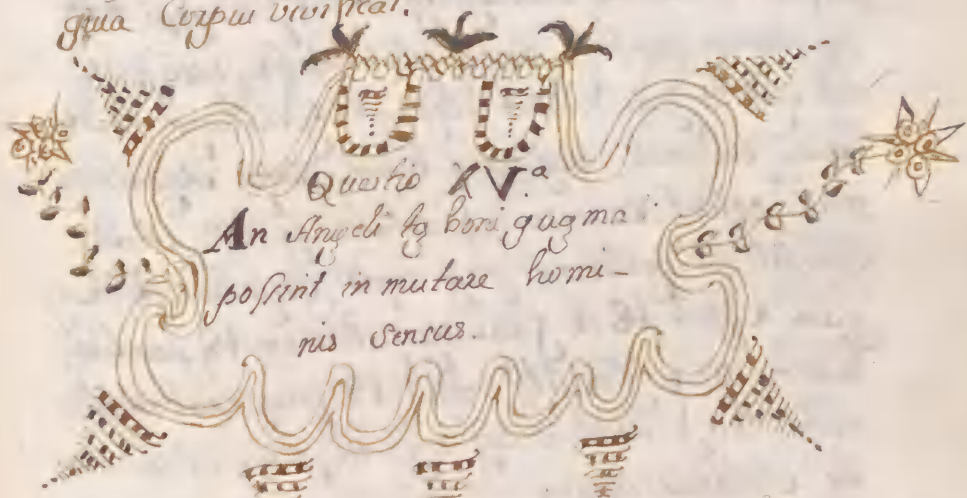 qua Corpus vivificat.
Questio XV.ª
An Angeli tã boni quã ma
possint in mutare homi-
nis sensus.